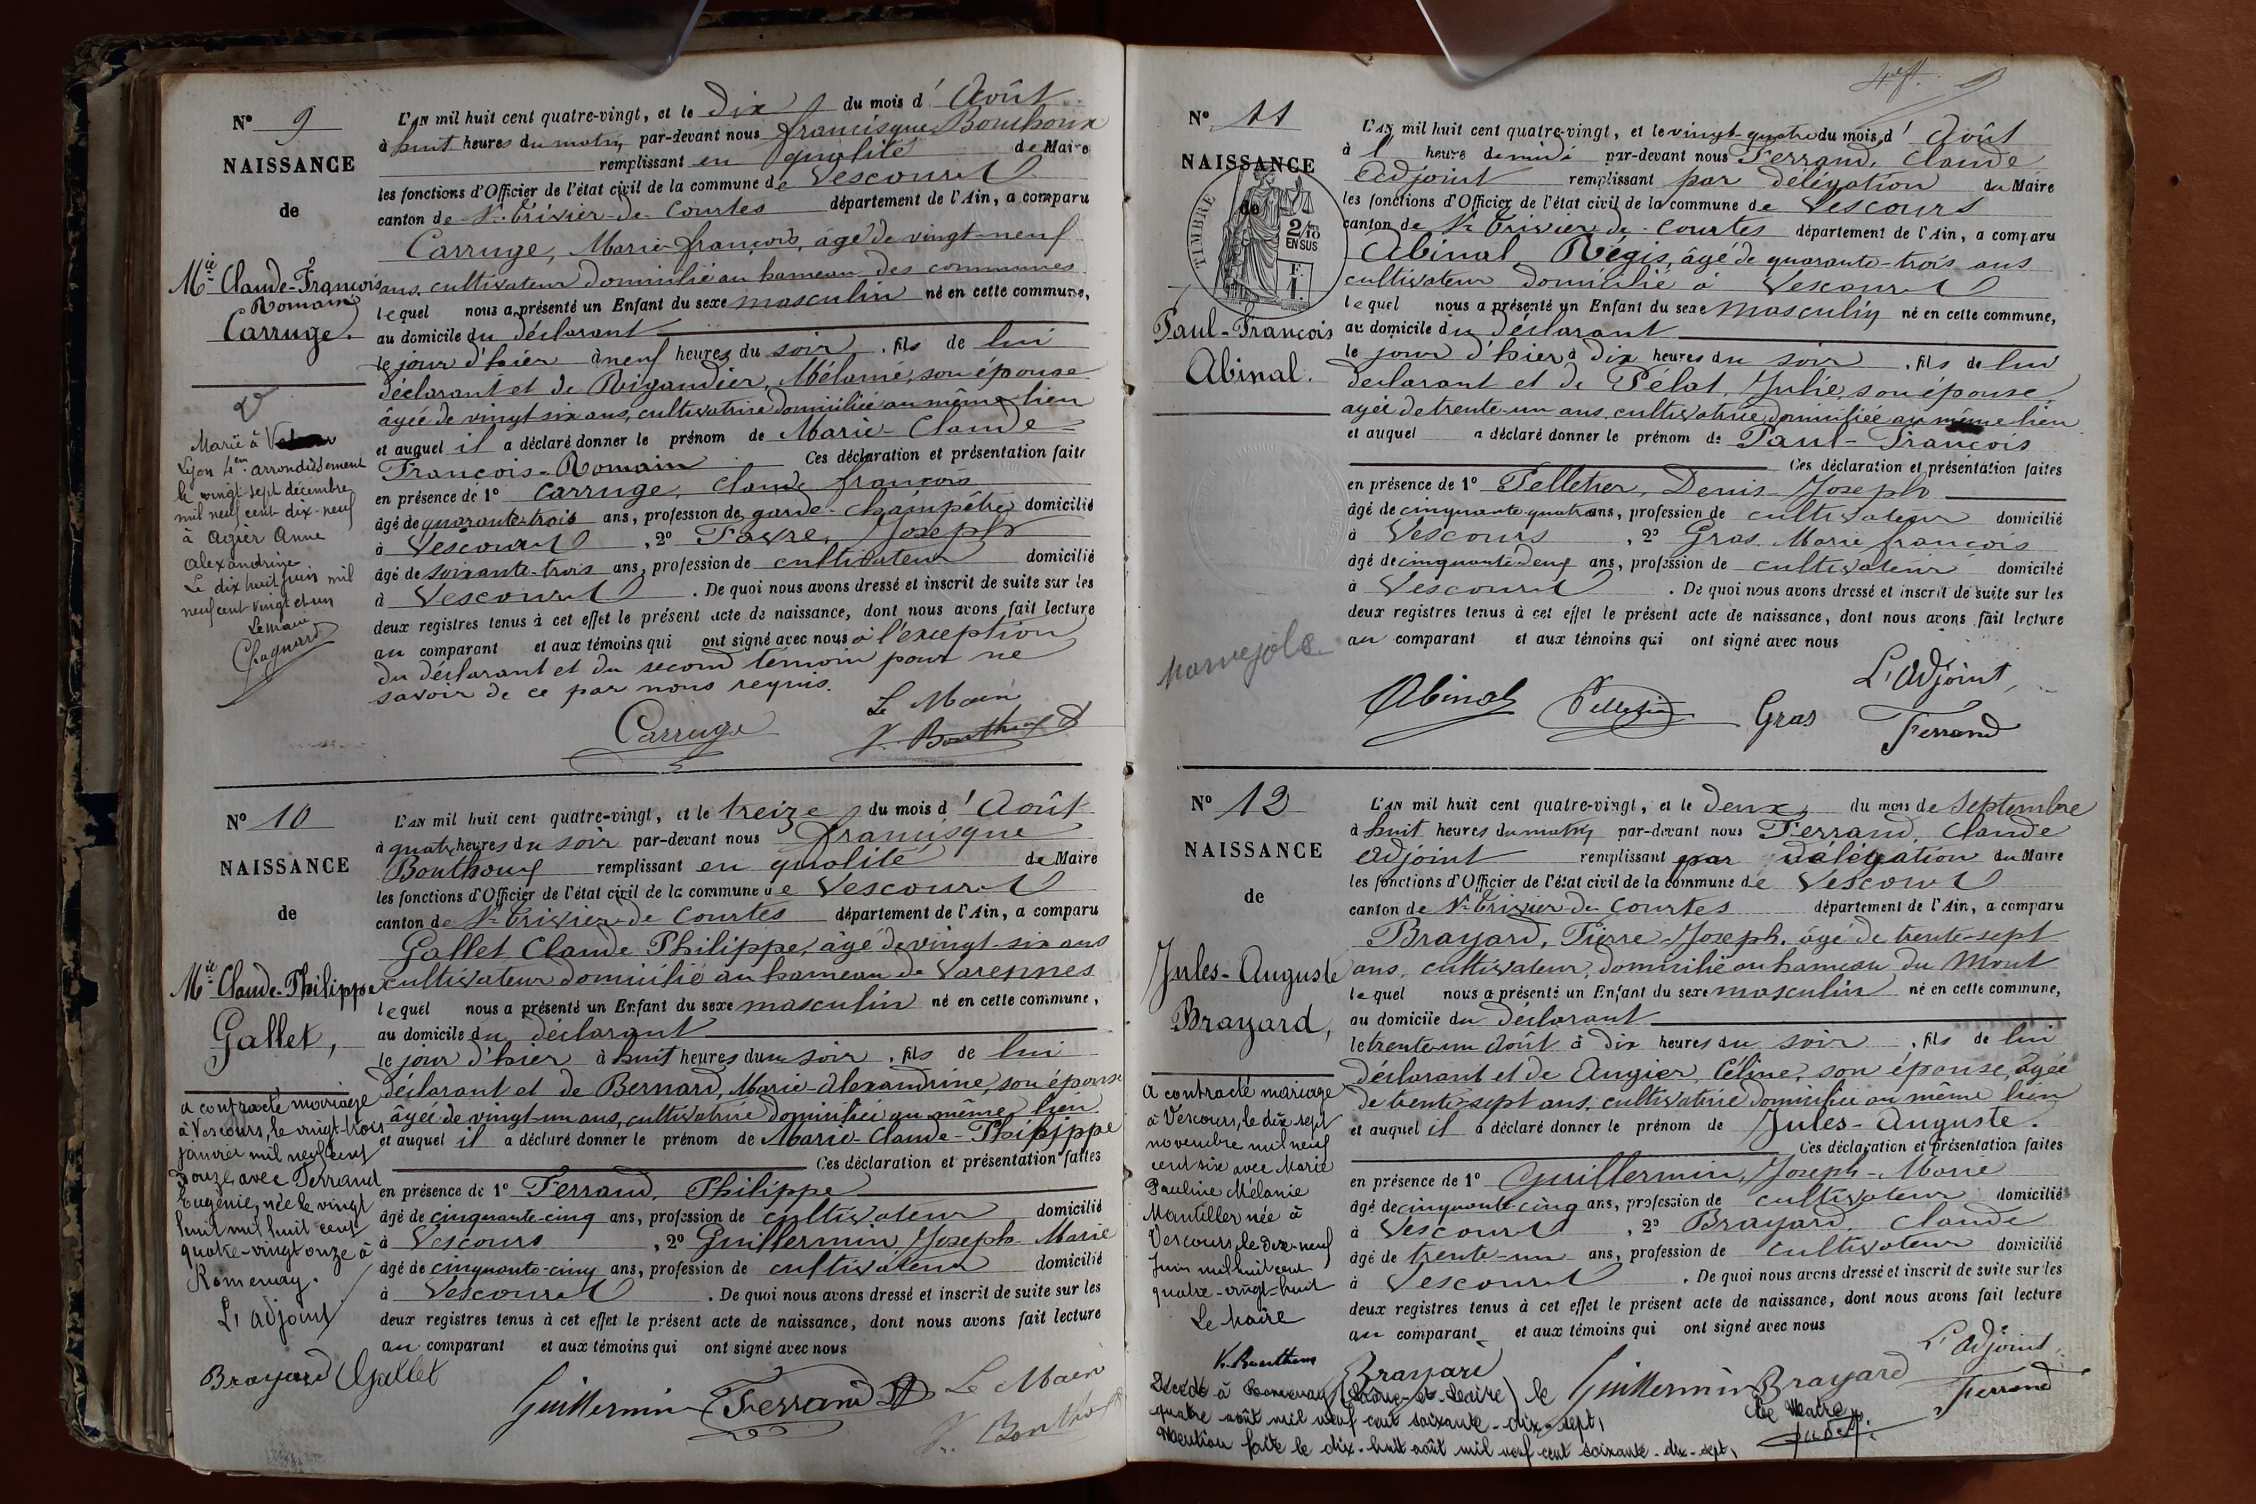 N° 9
NAISSANCE
de
Mie Claude-François
Romain
Carruge.
Marié à
Lyon 4em arrondissement
le vingt-sept décembre
mil neuf cent dix-neuf
à Agier Anne
Alexandrine
Le dix huit juin mil
neuf cent vingt et un
Le maire
Chagnard
L'AN mil huit cent quatre-vingt, et le dix du mois d'Août
à huit heures du matin, par-devant nous francisque Bouthoux
remplissant en qualité de Maire
les fonctions d'Officier de l'état civil de la commune de Vescours
canton de St Trivier-de-Courtes département de l'Ain, a comparu
Carruge, Marie-françois, âgé de vingt-neuf
ans, cultivateur domicilié au hameau des communes
lequel nous a présenté un Enfant du sexe masculin né en cette commune,
au domicile du déclarant
le jour d'hier à neuf heures du soir, fils de lui
déclarant et de Rigaudier, Mélanie, son épouse
âgée de vingt six ans, cultivatrice domiciliée au même lieu
et auquel il a déclaré donner le prénom de Marie-Claude-
François-Romain Ces déclaration et présentation faites
en présence de 1° Carruge, Claude françois
âgé de quarante-trois ans, profession de garde-champêtre domicilié
à Vescours, 2° Favre, Joseph
âgé de soixante-trois ans, profession de cultivateur domicilié
à Vescours. De quoi nous avons dressé et inscrit de suite sur les
deux registres tenus à cet effet le présent acte de naissance, dont nous avons fait lecture
au comparant et aux témoins qui ont signé avec nous à l'exception
du déclarant et du second témoin pour ne
savoir de ce par nous requis.
Le Maire
Carruge
F. Bouthoux
N° 10
NAISSANCE
de
Mie Claude-Philippe
Gallet,
a contracté mariage
à Vescours, le vingt-trois
janvier mil neuf cent
douze, avec Ferrand
Eugénie, née le vingt
huit mil huit cent
quatre-vingt onze à
Romenay.
L'adjoint
Brayard
L'AN mil huit cent quatre-vingt, et le treize du mois d'Août
à quatre heures du soir par-devant nous francisque
Bouthoux remplissant en qualité de Maire
les fonctions d'Officier de l'état civil de la commune de Vescours
canton de St Trivier de Courtes département de l'Ain, a comparu
Gallet, Claude Philippe, âgé de vingt-six ans
cultivateur domicilié au hameau de Varennes
lequel nous a présenté un Enfant du sexe masculin né en cette commune,
au domicile du déclarant
le jour d'hier à huit heures du soir, fils de lui
déclarant et de Bernard, Marie-Alexandrine, son épouse
âgée de vingt-un ans, cultivatrice domiciliée au même lieu
et auquel il a déclaré donner le prénom de Marie-Claude-Philippe
Ces déclaration et présentation faites
en présence de 1° Ferrand, Philippe
âgé de cinquante-cinq ans, profession de cultivateur domicilié
à Vescours, 2° Guillermin, Joseph-Marie
âgé de cinquante-cinq ans, profession de cultivateur domicilié
à Vescours. De quoi nous avons dressé et inscrit de suite sur les
deux registres tenus à cet effet le présent acte de naissance, dont nous avons fait lecture
au comparant et aux témoins qui ont signé avec nous
Gallet
Guillermin Ferrand Le Maire
F. Bouthoux
N° 11
NAISSANCE
de
TIMBRE
2/10 EN SUS
F. 1.
Paul-François
Abinal.
Marvejols
L'AN mil huit cent quatre-vingt, et le vingt-quatre du mois d'Août
à 1 heure de midi par-devant nous Ferrand, Claude
adjoint remplissant par délégation du Maire
les fonctions d'Officier de l'état civil de la commune de Vescours
canton de St Trivier-de-Courtes département de l'Ain, a comparu
Abinal Régis, âgé de quarante-trois ans
cultivateur domicilié à Vescours
lequel nous a présenté un Enfant du sexe masculin né en cette commune,
au domicile du déclarant
le jour d'hier à dix heures du soir, fils de lui
déclarant et de Pélat, Julie, son épouse,
agée de trente-un ans, cultivatrice domiciliée au même lieu
et auquel a déclaré donner le prénom de Paul-François
Ces déclaration et présentation faites
en présence de 1° Pelletier, Denis-Joseph
âgé de cinquante quatre ans, profession de cultivateur domicilié
à Vescours, 2° Gras Marie françois
âgé de cinquante deux ans, profession de cultivateur domicilié
à Vescours. De quoi nous avons dressé et inscrit de suite sur les
deux registres tenus à cet effet le présent acte de naissance, dont nous avons fait lecture
au comparant et aux témoins qui ont signé avec nous
L'Adjoint,
Abinal Pelletier Gras Ferrand
N° 12
NAISSANCE
de
Jules-Auguste
Brayard,
A contracté mariage
à Vescours, le dix-sept
novembre mil neuf
cent six avec Marie
Pauline Mélanie
Mantiller née à
Vescours, le dix-neuf
Juin mil huit cent
quatre-vingt-huit
Le Maire
F. Bouthoux
L'AN mil huit cent quatre-vingt, et le deux du mois de Septembre
à huit heures du matin par-devant nous Ferrand, Claude
adjoint remplissant par délégation du Maire
les fonctions d'Officier de l'état civil de la commune de Vescours
canton de St Trivier-de Courtes département de l'Ain, a comparu
Brayard, Pierre-Joseph, âgé de trente-sept
ans, cultivateur, domicilié au hameau du Mout
lequel nous a présenté un Enfant du sexe masculin né en cette commune,
au domicile du déclarant
le trente-un Août à dix heures du soir, fils de lui
déclarant et de Augier, Céline, son épouse, âgée
de trente-sept ans, cultivatrice domiciliée au même lieu
et auquel il a déclaré donner le prénom de Jules-Auguste.
Ces déclaration et présentation faites
en présence de 1° Guillermin, Joseph-Marie
âgé de cinquante-cinq ans, profession de cultivateur domicilié
à Vescours, 2° Brayard, Claude
âgé de trente-un ans, profession de cultivateur domicilié
à Vescours. De quoi nous avons dressé et inscrit de suite sur les
deux registres tenus à cet effet le présent acte de naissance, dont nous avons fait lecture
au comparant et aux témoins qui ont signé avec nous
L'Adjoint
Brayard Guillermin Brayard Ferrand
Décédé à Romenay (Saône-et-Loire) le
quatre août mil neuf cent soixante-dix-sept,
Mention faite le dix-huit août mil neuf cent soixante-dix-sept,
Le Maire,